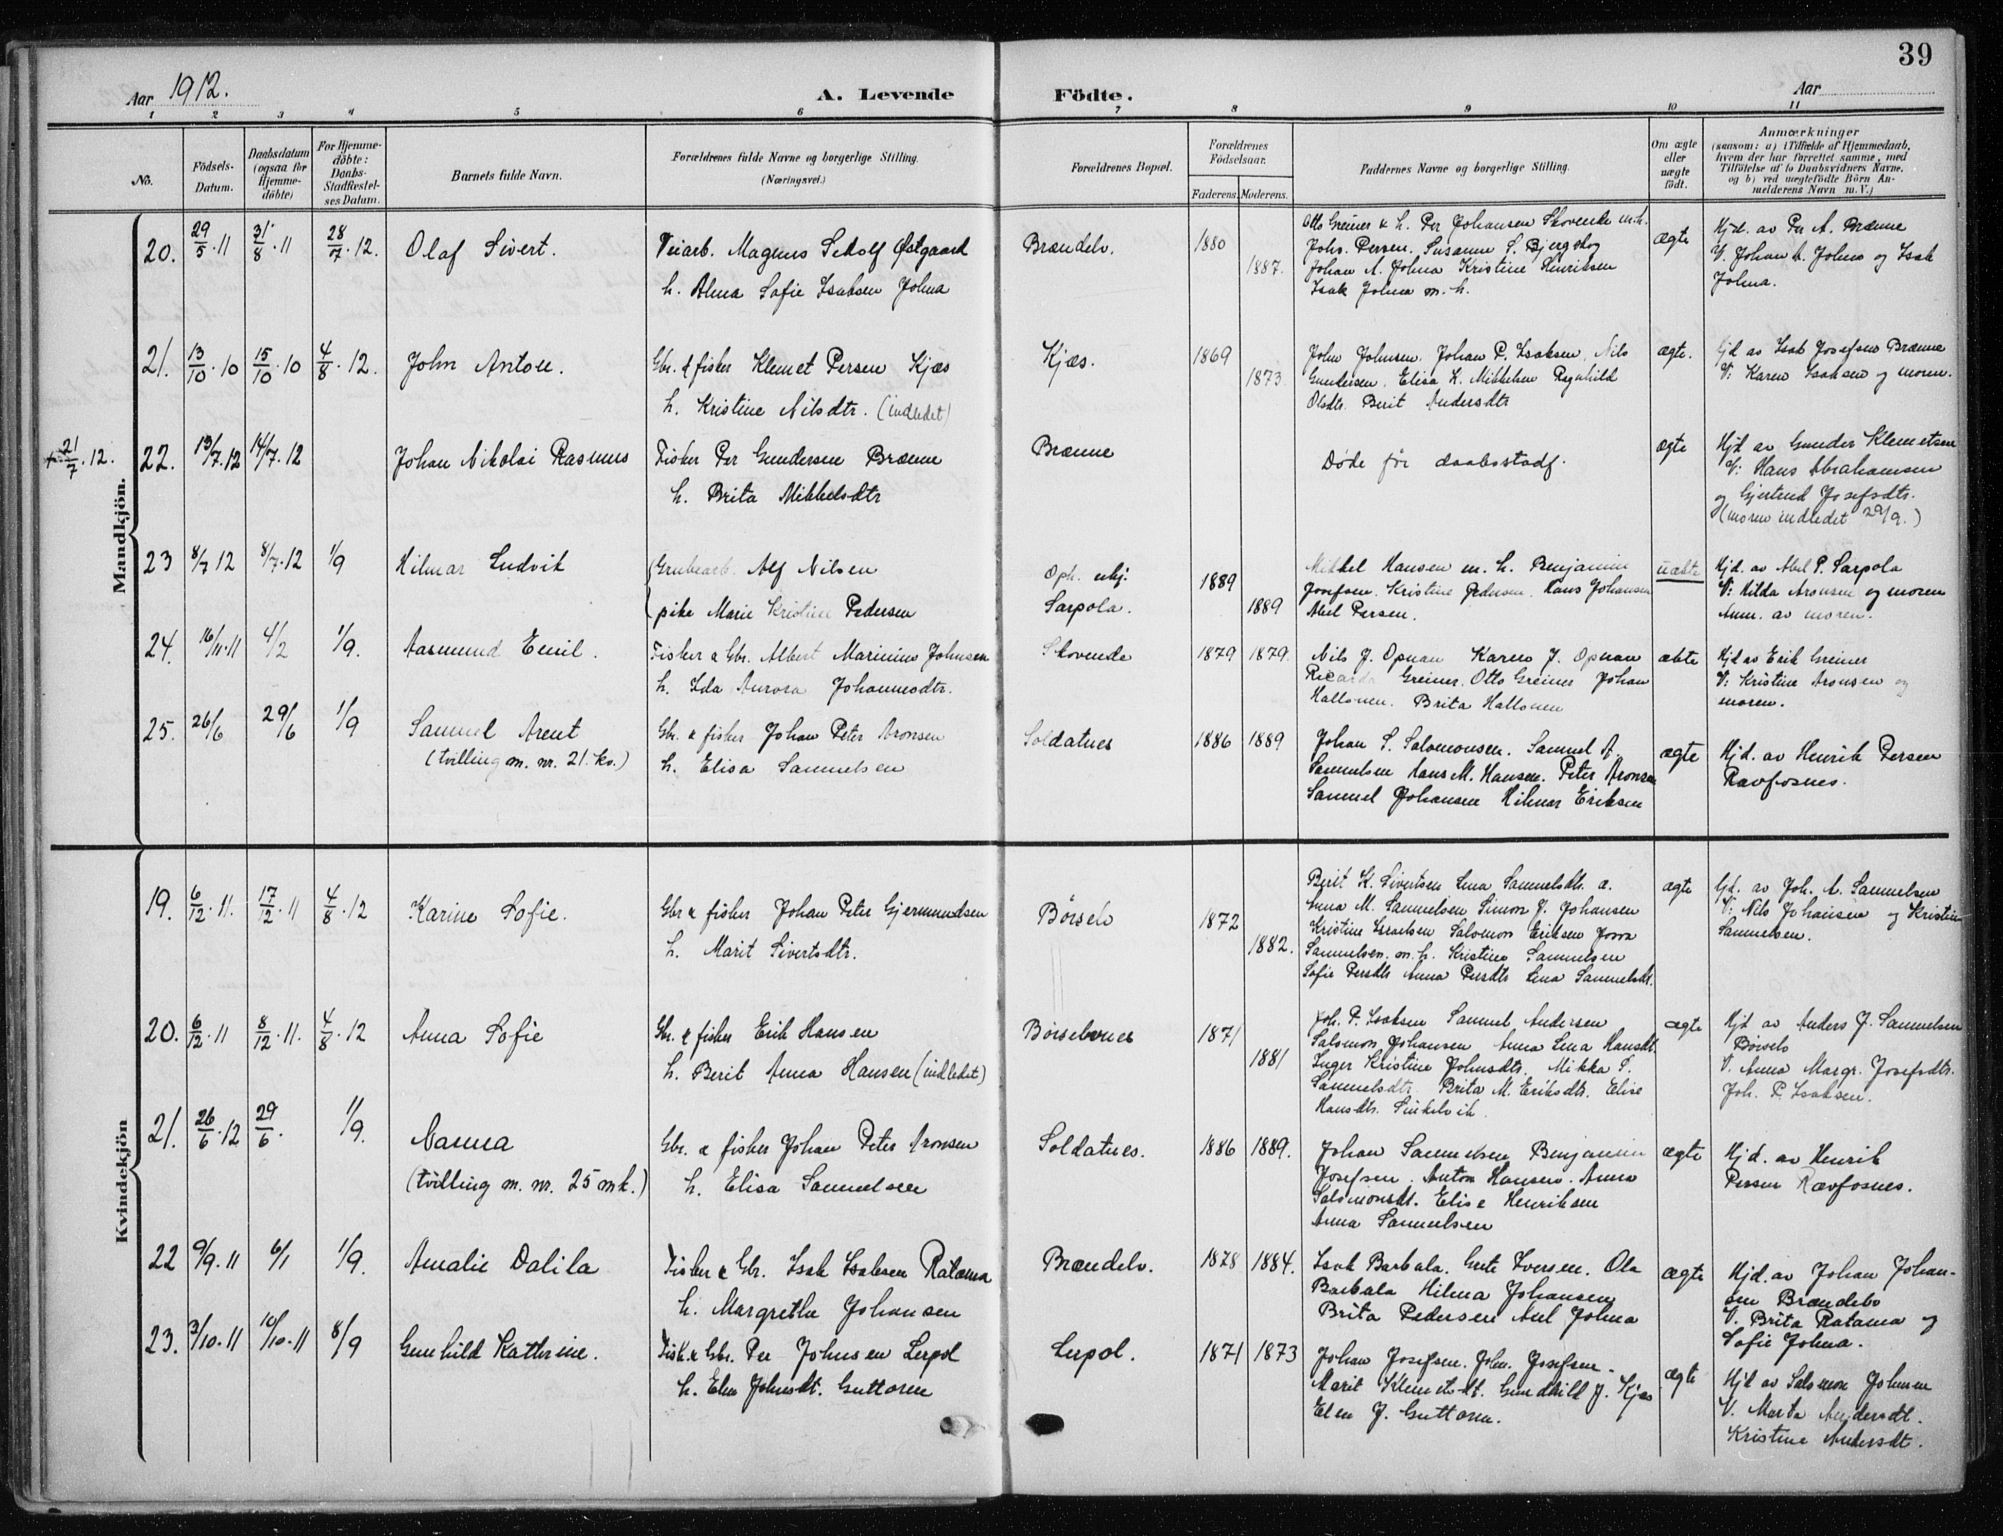 39
Aar 1912.
A. Levende Födte.
Aar
1 2 3 4 5 6 7 8 9 10 11
No.
Födsels-
Datum.
Daabsdatum
(ogsaa for
Hjemme-
döbte)
For Hjemme-
döbte:
Daabs-
Stadfæstel-
ses Datum.
Barnets fulde Navn.
Forældrenes fulde Navne og borgerlige Stilling.
(Næringsvei.)
Forældrenes Bopæl.
Forældrenes
Födselsaar.
Faderens. Moderens.
Faddernes Navne og borgerlige Stilling.
Om ægte
eller
uægte
födt.
Anmærkninger
(saasom: a) i Tilfælde af Hjemmedaab,
hvem der har forrettet samme, med
Tilföielse af to Daabsvidners Navne.
og b) ved uægtefödte Börn An-
melderens Navn m. V.)
Mandkjön.
20. 29/5 . 11 31/8 . 11 28/7 . 12. Olaf Sivert.
Veiarb. Magnus Østgaard
h. Alma Sofie Isaksen Johna
Brændelv. 1880 1887.
Otto Greiner & h. Per Johansen Skovende m. h.
Johs. Persen, Susanne S. Bjergskog
Johan A. Johna Kristine Henriksen
Isak Johna m. h.
ægte
Hjd. av Per A. Brænne
V. Johan A. Johna og Isak
Johna.
21. 13/10 . 10 15/10 . 10 4/8 . 12. John Anton.
Gbr. & fisker Klemet Persen Kjæs
h. Kristine Nilsdtr. (indledet)
Kjæs. 1869 1873.
John Johnsen. Johan P. Isaksen. Nils
Gundersen. Elisa K. Mikkelsen Ragnhild
Olsdtr. Berit Andersdtr
ægte.
Hjd av Isak Josefsen Brænne
V: Karen Isaksen og moren.
+ 21/7 . 12. 22. 13/7 . 12 14/7 . 12 Johan Nikolai Rasmus
Fisker Per Gundersen Brænne
h. Brita Mikkelsdtr
Brænne
Døde før daabsstadf.
ægte
Hjd av Gunder Klemetsen
V: Hans Abrahamsen
og Gjertrud Josefsdtr.
(moren indledet 29/9.)
23 8/7 12 8/7 . 12 1/9 Hilmar Ludvik
Grubearb. Alf Nilsen
pike Marie Kristine Pedersen
Oph. ubj.
Sarpola. 1889 1889
Mikkel Hansen m. h. Benjamin
Josefsen. Kristine Pedersen. Hans Johansen
Abel Persen.
uækte
Hjd. av Abel P. Sarpola
V: Hilda Aronsen og moren
Anm. av moren.
24. 16/11 . 11 4/2 1/9. Aasmund Emil.
Fisker & Gbr. Albert Marinius Johnsen
h. Ida Aurora Johannesdtr.
Skovende 1879 1879.
Nils J. Opnan Karen J. Opnan
Ricarda Greiner. Otto Greiner Johan
Hallonen. Brita Hallonen
ækte
Hjd av Erik Greiner
V: Kristine Aronsen og
moren.
25. 26/6 29/6 1/9 Samuel Arent
(tvilling m. nr. 21. kv.)
Gbr. & fisker Johan Peter Aronsen
h. Elisa Samuelsen
Soldatnes 1886 1889
Johan S. Salomonsen. Samuel A.
Samuelsen Hans M. Hansen. Peter Aronsen
Samuel Johansen Hilmar Eriksen
ægte
Hjd. av Henrik Persen
Ravfosnes.
Kvindekjön
19. 6/12 . 11. 17/12 . 11 4/8 . 12 Karine Sofie.
Gbr & fisker Johan Peter Gjermundsen
h. Marit Sivertsdtr.
Børselv 1872 1882.
Berit K. Sivertsen Lena Samuelsdtr. a.
Anna M. Samuelsen Simon J. Johansen
Kristine Israelsen Salomon Eriksen
Samuelsen. m. h. Kristine Samuelsen
Sofie Persdtr Anna Persdtr Lena Samuelsdt.
ægte
Hjd. av Joh. A. Samuelsen
V: Nils Johansen og Kristine
Samuelsen.
20. 6/12 . 11 8/12 . 11. 4/8 . 12 Anna Sofie
Gbr. & fisker Erik Hansen
h. Berit Anna Hansen (indledet)
Børselvnes 1871 1881
Joh. P. Isaksen Samuel Andersen
Salomon Johansen Anna Lena Hansdt.
Inger Kristine Johnsdtr. Mikka S.
Samuelsdtr. Brita M. Eriksdtr. Elise
Hansdtr.
ægte
Hjd av Anders J. Samuelsen
Børselv
V. Anna Margr. Josefsdtr.
Joh. P. Isaksen.
21. 26/6 . 12 29/6 . 1/9. Nanna
(tvilling m. nr. 25 mk.)
Gbr. & fisker Johan Peter Aronsen
h. Elisa Samuelsen
Soldatnes. 1886 1889.
Johan Samuelsen Benjamin
Josefsen. Anton Hansen. Anna
Salomonsdt. Elise Henriksen
Anna Samuelsen
ægte
Hjd. av Henrik
Persen Ravfosnes.
22 9/9 . 11 6/1 1/9. Amalie Dalila
Fisker & Gbr. Isak Isaksen Ratama
h. Margrethe Johansen
Brændelv. 1878 1884.
Isak Barbala. Grete Iversen. Ola
Barbala Hilma Johansen
Brita Pedersen Johna
ægte
Hjd. av Johan Johan-
sen Brændelv
V. Brita Ratama og
Sofie Johna.
23. 3/10 . 11 10/10 . 11 8/9 Gunhild Kathrine.
Fisk. & Gbr. Per Johnsen Lerpol
h. Elen Johnsdt. Guttorm
Lerpol. 1871 1873
Johan Josefsen. John. Josefsen.
Marit Klemetsdt. Gundhild J. Kjæs
Elen J. Guttorm.
ægte
Hjd av Salomon Johnsen
V. Marta Andersdt.
Kristine Andersdt.